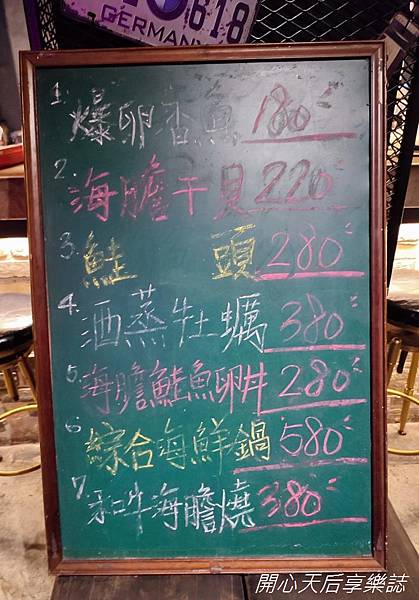 618
GERMANY
1. 爆卵香魚 180
2. 海膽干貝 220
3. 鮭頭 280
4. 酒蒸牡蠣 380
5. 海膽鮭魚卵丼 280
6. 綜合海鮮鍋 580
7. 和牛海膽燒 380
開心天后享樂誌